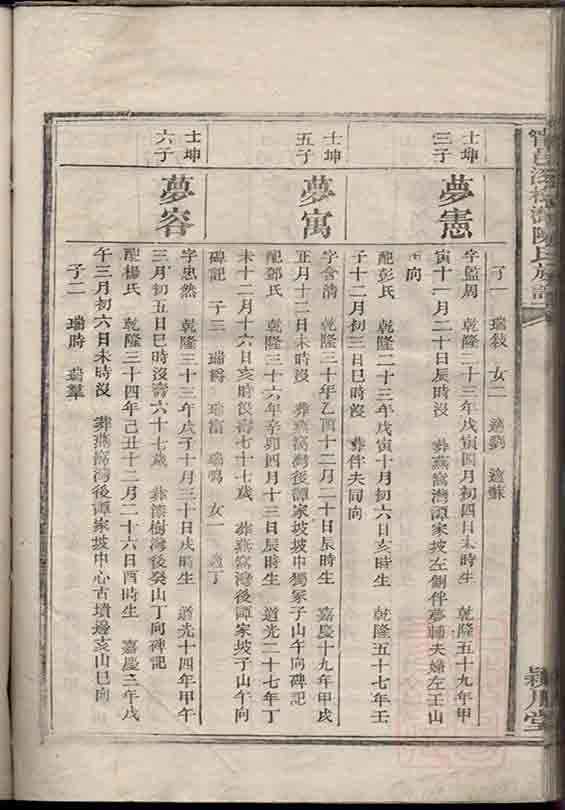 甯邑漆樹灣陳氏族譜
潁川堂
子一 瑞敍 女二 適劉 適蘇
士坤三子
夢憲
字監周 乾隆二十三年戊寅四月初四日未時生 乾隆五十九年甲
寅十一月二十日辰時沒 葬燕窩灣譚家坡左側伴夢輔夫婦左壬山
丙向
配彭氏 乾隆二十三年戊寅十月初六日亥時生 乾隆五十七年壬
子十二月初三日巳時沒 葬伴夫同向
士坤五子
夢寓
字含清 乾隆三十年乙酉十二月二十日辰時生 嘉慶十九年甲戌
正月十二日未時沒 葬燕窩灣後譚家坡坡中獨冢子山午向碑記
配鄧氏 乾隆三十六年辛卯四月十三日辰時生 道光二十七年丁
未十二月十六日亥時沒壽七十七歲 葬燕窩灣後譚家坡子山午向
碑記 子三 瑞爵 瑞富 瑞鳴 女一 適丁
士坤六子
夢容
字忠然 乾隆三十三年戊子十月三十日戌時生 道光十四年甲午
三月初五日巳時沒壽六十七歲 葬漆樹灣後癸山丁向碑記
配楊氏 乾隆三十四年己丑十二月二十六日酉時生 嘉慶三年戊
午三月初六日未時沒 葬燕窩灣後譚家坡中心古墳邊亥山巳向
子二 瑞時 瑞羣